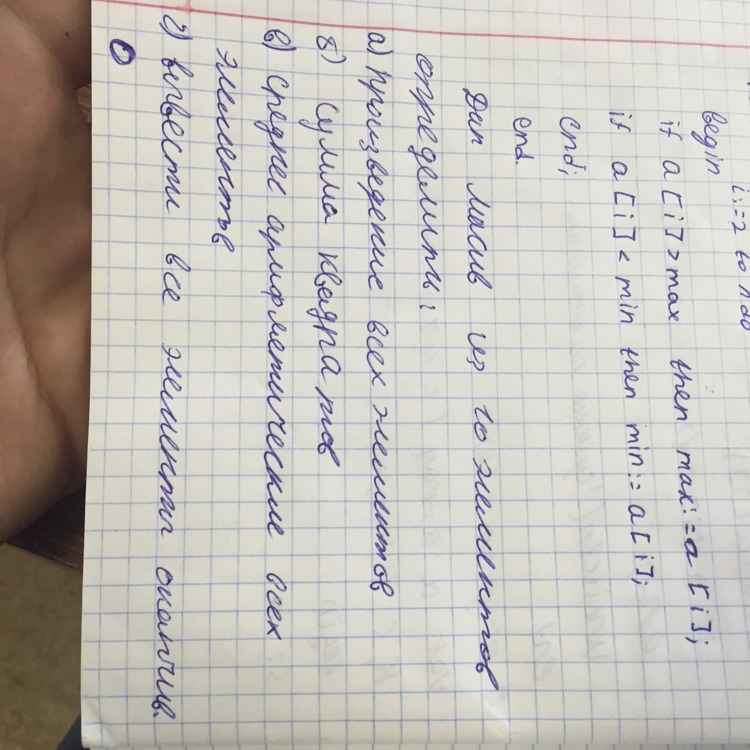 i:=2 to n do
begin
if a[i]>max then max:=a[i];
if a[i]<min then min:=a[i];
end;
end.
Дан масив из 10 элементов
определить:
а) произведение всех элементов
б) сумма квадратов
в) среднее арифметические всех
элементов
г) вывести все элементы окончив.
0